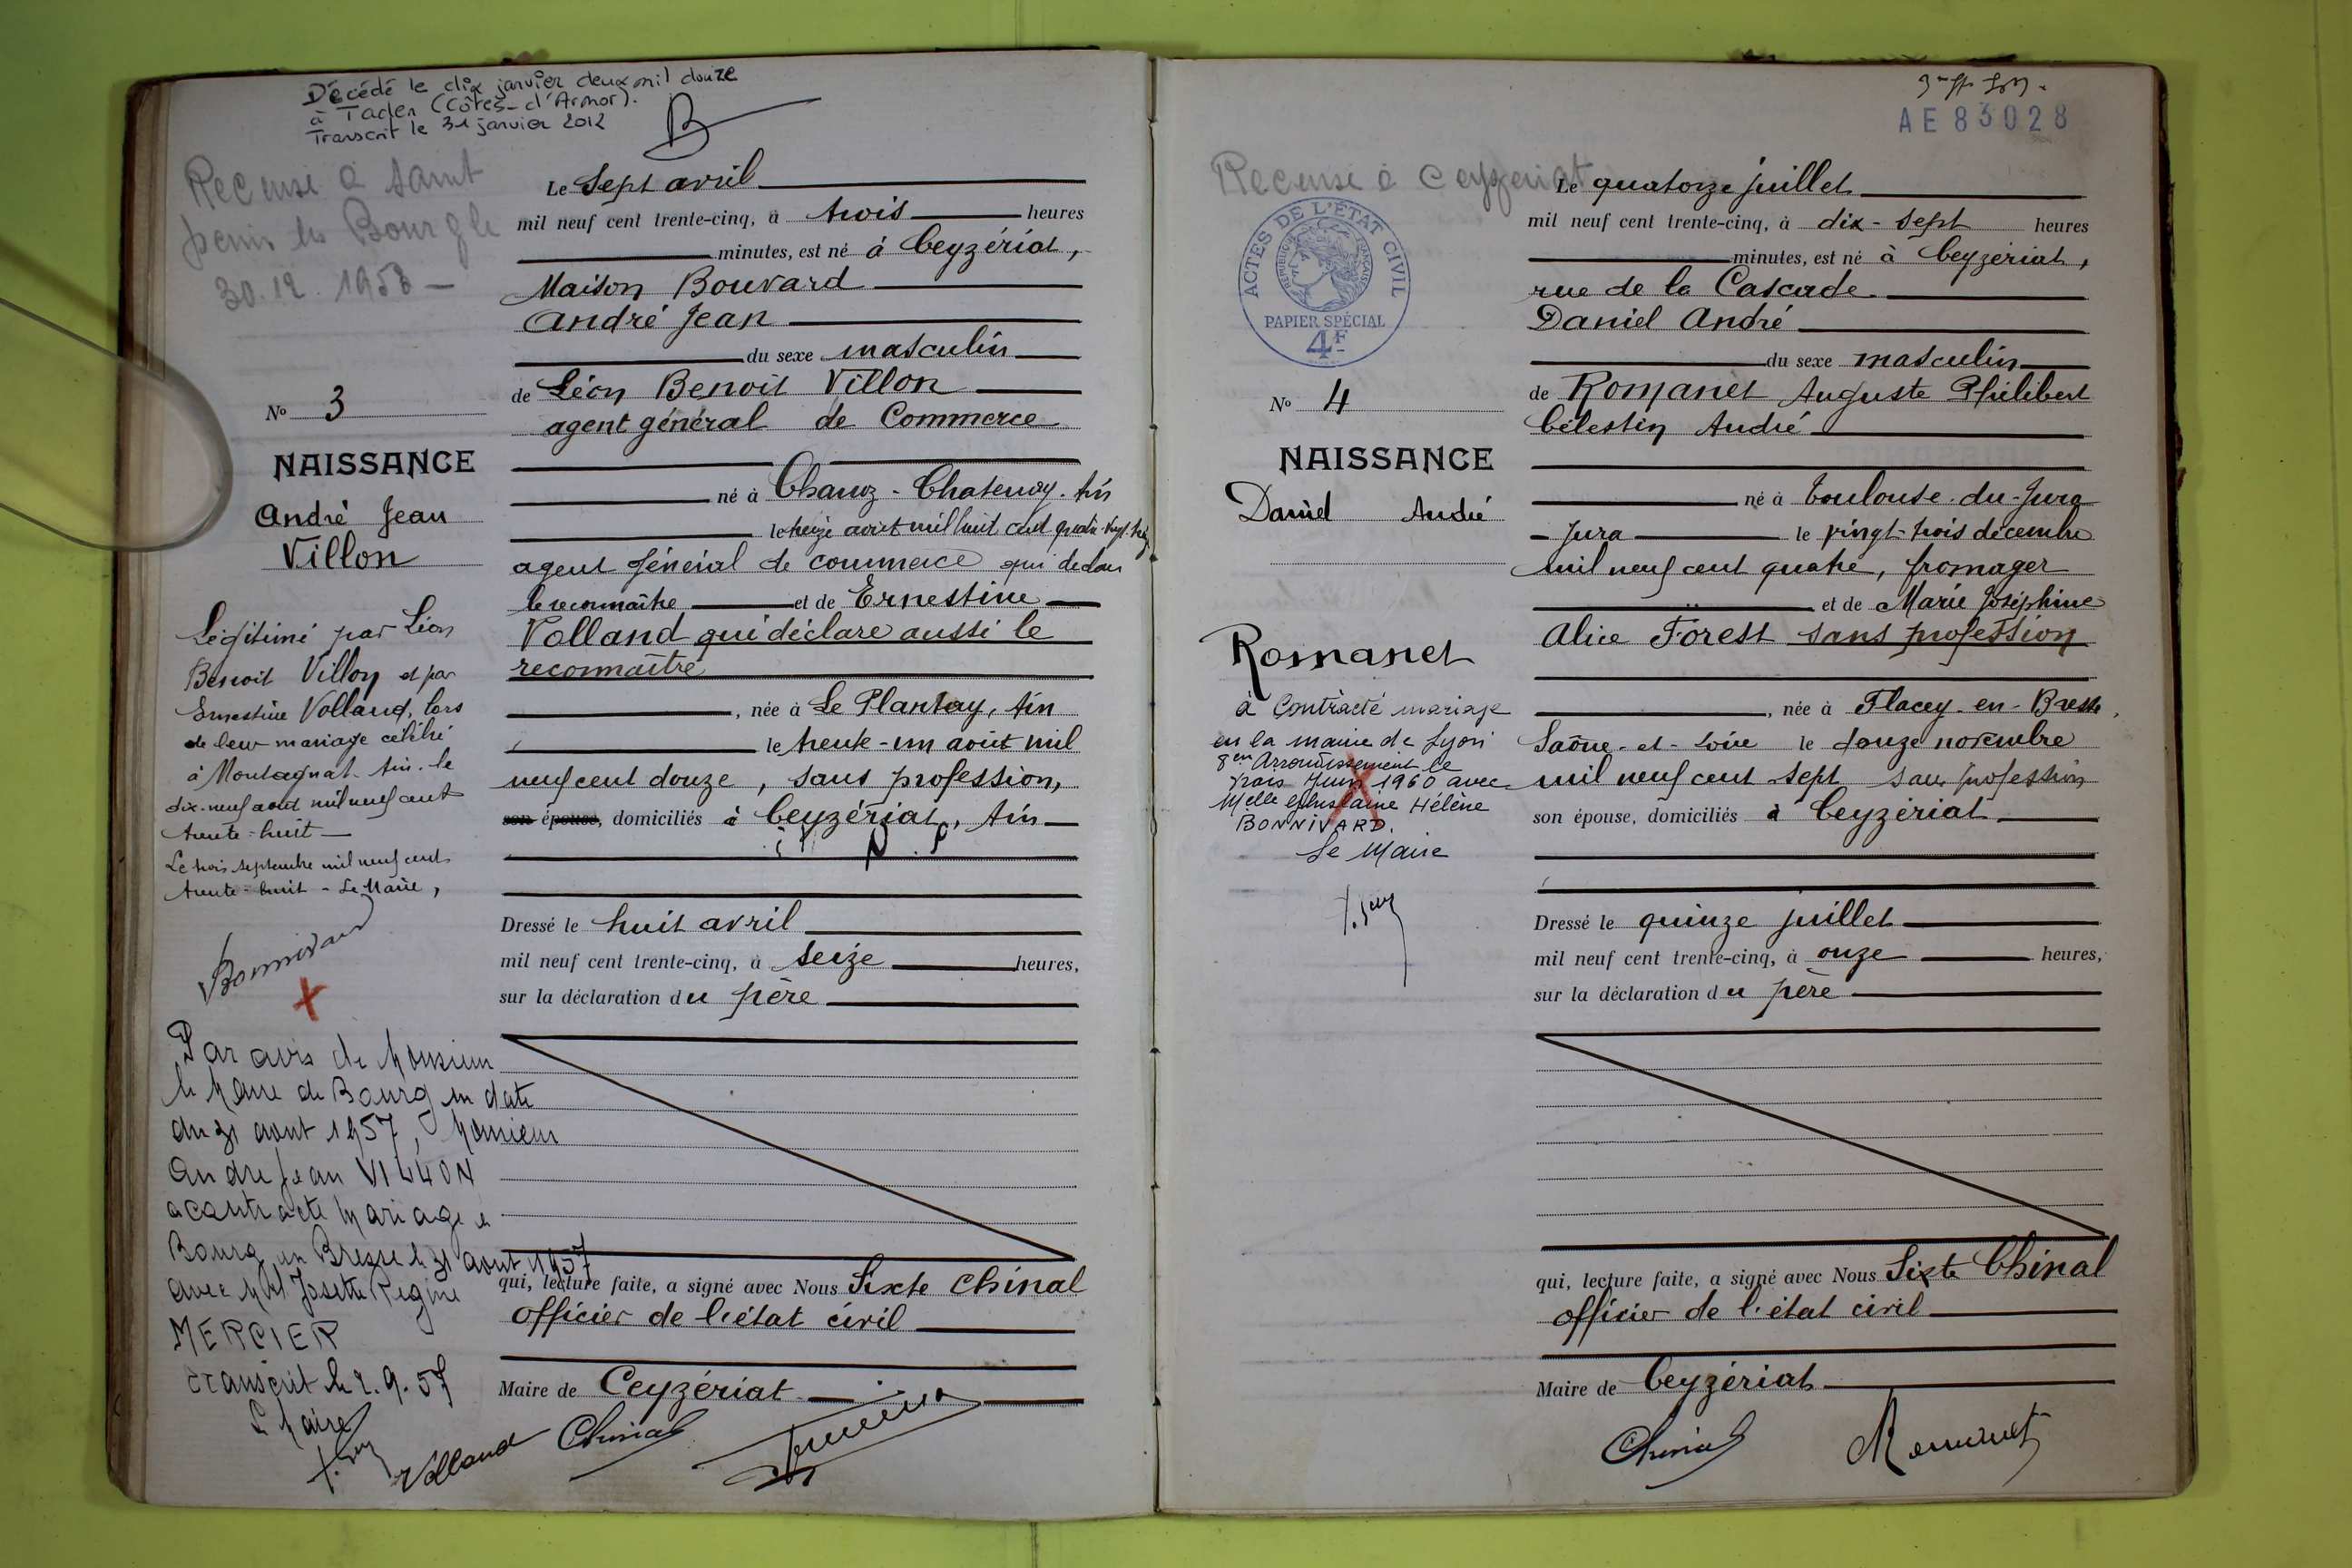 Décédé le dix janvier deux mil douze
à Taden (Côtes-d'Armor).
Transcrit le 31 janvier 2012
Recensé à Saint
Denis les Bourg le
30.12.1953 -
Nº 3
NAISSANCE
André Jean
Villon
Légitimé par Léon
Benoit Villon et par
Ernestine Volland, lors
de leur mariage célébré
à Montagnat. Ain. le
dix-neuf aout mil neuf cent
trente-huit
Le trois septembre mil neuf cent
trente-huit - Le Maire,
Bonnivard
Par avis de Monsieur
le Maire de Bourg en date
du 31 aout 1957, Monsieur
André Jean VILLON
a contracté mariage à
Bourg en Bresse le 31 aout 1957
avec Mlle Josette Régine
MERCIER
transcrit le 2.9.57
Le Maire
Le Sept avril
mil neuf cent trente-cinq, à trois heures
minutes, est né à Ceyzériat,
Maison Bouvard
André Jean
du sexe masculin
de Léon Benoit Villon
agent général de Commerce
né à Chanoz-Chatenay. Ain
le treize août mil huit cent quatre-vingt
agent général de commerce qui déclare
le reconnaître et de Ernestine
Volland qui déclare aussi le
reconnaître
, née à Le Plantay, Ain
le trente-un août mil
neuf cent douze, sans profession,
son épouse, domiciliés à Ceyzériat, Ain
Dressé le huit avril
mil neuf cent trente-cinq, à seize heures,
sur la déclaration du père
qui, lecture faite, a signé avec Nous Sixte Chinal
officier de l'état civil
Maire de Ceyzériat
Volland Chinal
AE83028
Recensé à Ceyzeriat
ACTES DE L'ÉTAT CIVIL
RÉPUBLIQUE FRANÇAISE
PAPIER SPÉCIAL
4F
Nº 4
NAISSANCE
Daniel André
Romanet
à Contracté mariage
en la mairie de Lyon
Arrondissement le
trois Juin 1960 avec
Melle Ghislaine Hélène
BONNIVARD.
Le Maire
Le quatorze juillet
mil neuf cent trente-cinq, à dix-sept heures
minutes, est né à Ceyzériat,
rue de la Cascade.
Daniel André
du sexe masculin
de Romanet Auguste Philibert
Célestin André
né à Toulouse-du-Jura
- Jura le vingt-trois décembre
mil neuf cent quatre, fromager
et de Marie Joséphine
Alice Forest sans profession
, née à Flacey-en-Bresse,
Saône-et-Loire le douze novembre
mil neuf cent sept sans profession
son épouse, domiciliés à Ceyzériat
Dressé le quinze juillet
mil neuf cent trente-cinq, à onze heures,
sur la déclaration du père
qui, lecture faite, a signé avec Nous Sixte Chinal
officier de l'état civil
Maire de Ceyzériat
Chinal Romanet